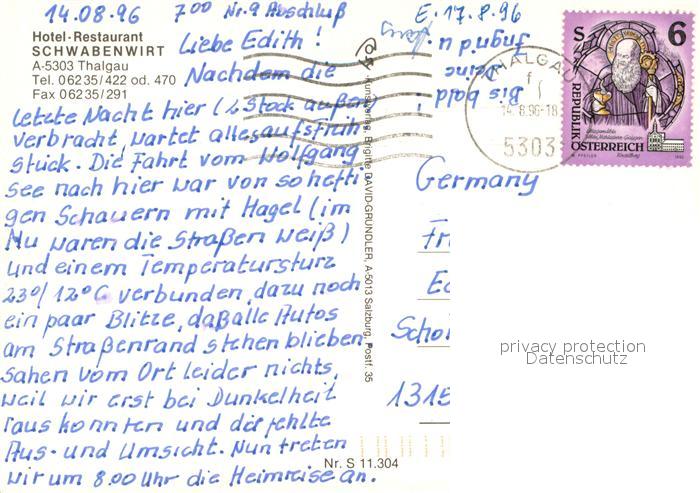 14.08.96 7⁰⁰ Nr.9 Abschluß
Hotel-Restaurant
SCHWABENWIRT
A-5303 Thalgau
Tel. 06235/422 od. 470
Fax 06235/291
Liebe Edith!
Nachdem die
letzte Nacht hier (2. Stock außen)
verbracht, wartet alles aufs Früh-
stück. Die Fahrt vom Wolfgang
see nach hier war von so hefti-
gen Schauern mit Hagel (im
Nu waren die Straßen weiß)
und einem Temperatursturz
23°/12°C verbunden, dazu noch
ein paar Blitze, daß alle Autos
am Straßenrand stehen blieben.
Sahen vom Ort leider nichts,
weil wir erst bei Dunkelheit
raus konnten und da fehlte
Aus- und Umsicht. Nun treten
wir um 8.00 Uhr die Heimreise an.
Bis bald
E. 17.8.96
Kunstverlag, Brigitte DAVID-GRÜNDLER, A-5013 Salzburg, Postf. 35
Nr. S 11.304
THALGAU
14.8.96-18
5303
S 6
REPUBLIK
ÖSTERREICH
Germany
Fr
Ed
Schol
1315
privacy protection
Datenschutz